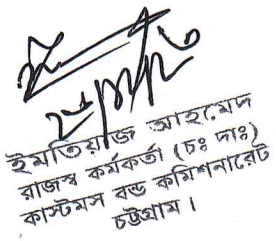 ইমতিয়াজ আহমেদ
রাজস্ব কর্মকর্তা (চঃ দাঃ)
কাস্টমস বন্ড কমিশনারেট
চট্টগ্রাম।